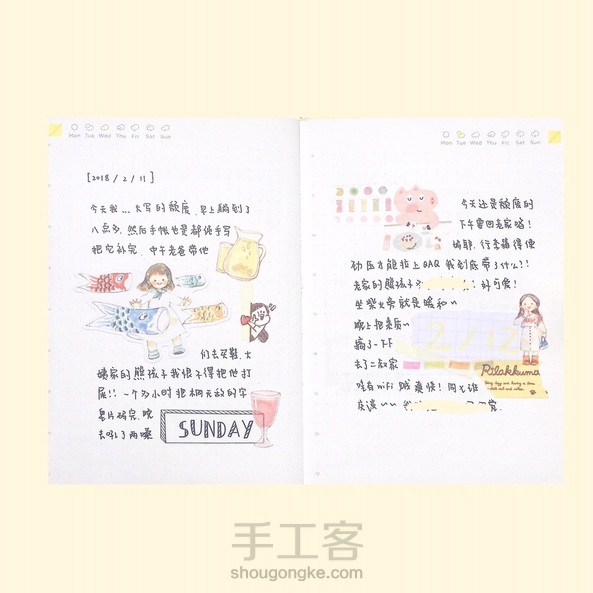 Mon Tue Wed Thu Fri Sat Sun
[2018 / 2 / 11]
今天我...大写的颓废.早上躺到了
八点多.然后手帐也是都使手写
把它补完.中午老爸带他
们去买鞋.大
姨家的熊孩子我恨不得把他打
屁!! 一个多小时把桐天敌的字
完.晚
去吃了两嗓
SUNDAY
Mon Tue Wed Thu Fri Sat Sun
今天还是颓废的
下午要回老家喽!
行李箱得使
劲压才能拉上QAQ 我到底带了什么?!
老家的熊孩子 好可爱!
坐柴火旁就是暖和~
晚上把素质~
搞了一下
2/12
去了二叔家
有WiFi 贼爽快! 网
夜谈~~
Rilakkuma
手工客
shougongke.com